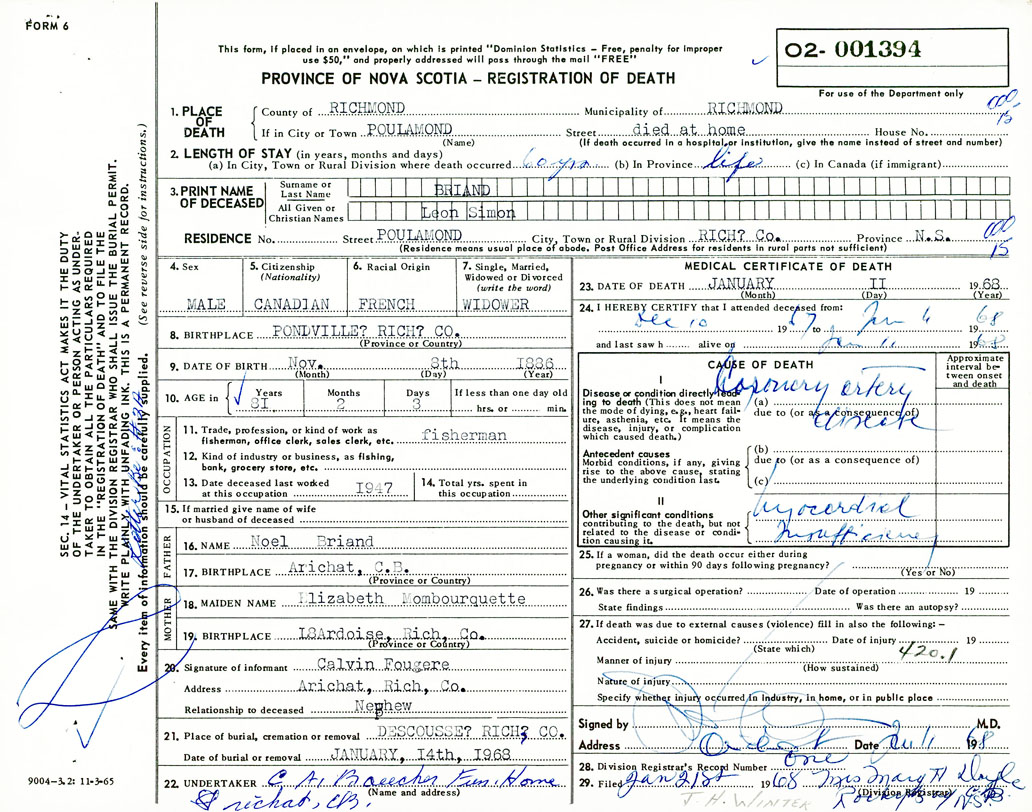 FORM 6
This form, if placed in an envelope, on which is printed "Dominion Statistics – Free, penalty for improper
use $50," and properly addressed will pass through the mail "FREE"
PROVINCE OF NOVA SCOTIA – REGISTRATION OF DEATH
02- 001394
For use of the Department only
1. PLACE OF DEATH
County of RICHMOND Municipality of RICHMOND
If in City or Town POULAMOND Street died at home House No.
(Name) (If death occurred in a hospital or institution, give the name instead of street and number)
2. LENGTH OF STAY (in years, months and days)
(a) In City, Town or Rural Division where death occurred 60 yrs (b) In Province life (c) In Canada (if immigrant)
3. PRINT NAME OF DECEASED
Surname or Last Name BRIAND
All Given or Christian Names Leon Simon
RESIDENCE No. Street POULAMOND City, Town or Rural Division RICH? Co. Province N.S.
(Residence means usual place of abode. Post Office Address for residents in rural parts not sufficient)
000
15
000
15
4. Sex
MALE
5. Citizenship (Nationality)
CANADIAN
6. Racial Origin
FRENCH
7. Single, Married, Widowed or Divorced (write the word)
WIDOWER
8. BIRTHPLACE PONDVILLE? RICH? CO.
(Province or Country)
9. DATE OF BIRTH Nov. 8th 1886
(Month) (Day) (Year)
10. AGE in
Years Months Days If less than one day old
8I 2 3 hrs. or min.
OCCUPATION
11. Trade, profession, or kind of work as fisherman, office clerk, sales clerk, etc. fisherman
12. Kind of industry or business, as fishing, bank, grocery store, etc.
13. Date deceased last worked at this occupation I947
14. Total yrs. spent in this occupation
15. If married give name of wife or husband of deceased
FATHER
16. NAME Noel Briand
17. BIRTHPLACE Arichat, C.B.
(Province or Country)
MOTHER
18. MAIDEN NAME Elizabeth Mombourquette
19. BIRTHPLACE L8Ardoise, Rich, Co.
(Province or Country)
20. Signature of informant Calvin Fougere
Address Arichat, Rich, Co.
Relationship to deceased Nephew
21. Place of burial, cremation or removal DESCOUSSE? RICH? CO.
Date of burial or removal JANUARY, 14th, 1968
22. UNDERTAKER C. A. Boucher Fun. Home
(Name and address)
Arichat, C.B.
MEDICAL CERTIFICATE OF DEATH
23. DATE OF DEATH JANUARY II 19 68
(Month) (Day) (Year)
24. I HEREBY CERTIFY that I attended deceased from:
Dec 10 19 67 to Jan 11 19 68
and last saw h alive on Jan 11 19 68
CAUSE OF DEATH
Approximate interval between onset and death
I
Disease or condition directly leading to death (This does not mean the mode of dying, e.g., heart failure, asthenia, etc. It means the disease, injury, or complication which caused death.)
(a) Coronary artery disease
due to (or as a consequence of)
Antecedent causes
Morbid conditions, if any, giving rise to the above cause, stating the underlying condition last.
(b)
due to (or as a consequence of)
(c)
II
Other significant conditions contributing to the death, but not related to the disease or condition causing it.
Myocardial
Insufficiency
25. If a woman, did the death occur either during pregnancy or within 90 days following pregnancy?
(Yes or No)
26. Was there a surgical operation? Date of operation 19
State findings Was there an autopsy?
27. If death was due to external causes (violence) fill in also the following: –
Accident, suicide or homicide? Date of injury 19
(State which)
420.1
Manner of injury
(How sustained)
Nature of injury
Specify whether injury occurred in industry, in home, or in public place
Signed by M.D.
Address Date Jan 11 1968
28. Division Registrar's Record Number one
29. Filed Jan 21st 1968 Mrs Mary H Doyle
(Division Registrar)
J. H. WINTER
9004-3.2: 11-3-65
SEC. 14 – VITAL STATISTICS ACT MAKES IT THE DUTY
OF THE UNDERTAKER OR PERSON ACTING AS UNDER-
TAKER TO OBTAIN ALL THE PARTICULARS REQUIRED
IN THE "REGISTRATION OF DEATH" AND TO FILE THE
SAME WITH THE DIVISION REGISTRAR WHO SHALL ISSUE THE BURIAL PERMIT.
WRITE PLAINLY WITH UNFADING INK. THIS IS A PERMANENT RECORD.
Every item of information should be carefully supplied. (See reverse side for instructions.)